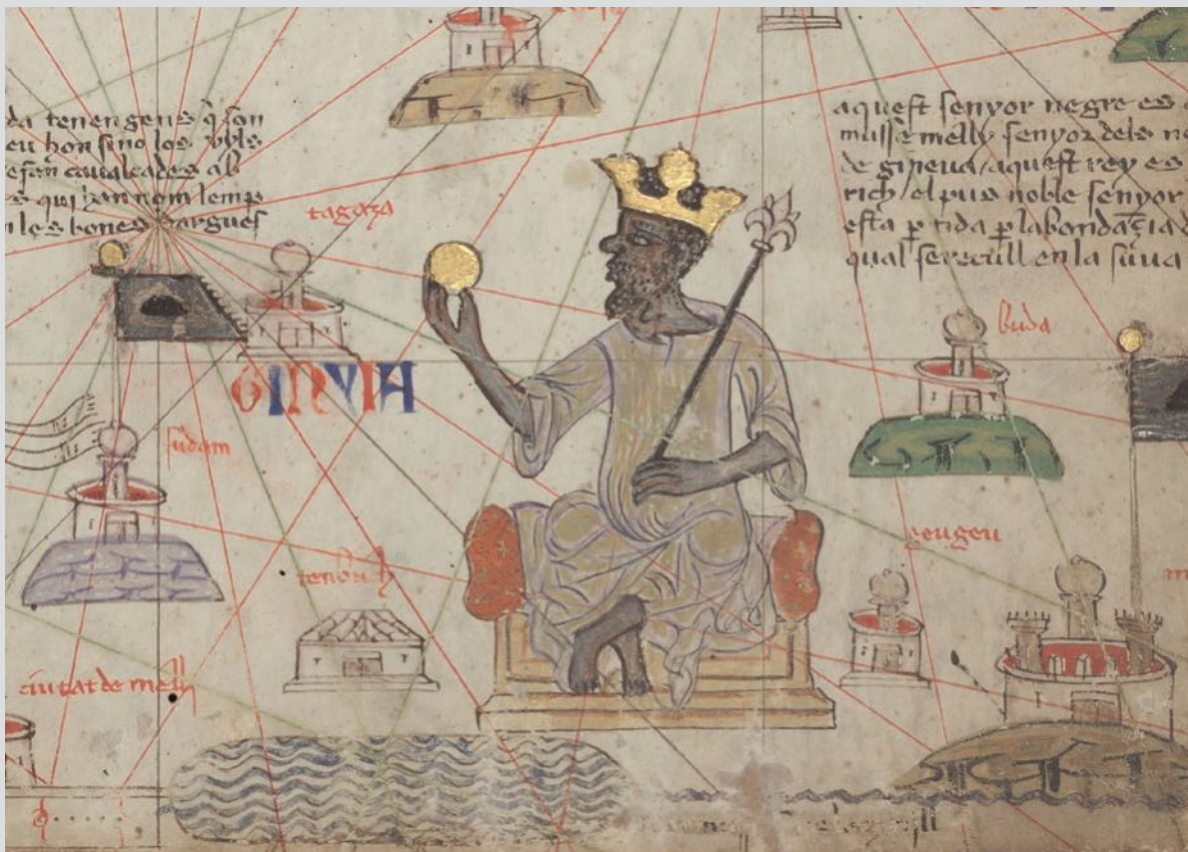 da tenen gens q̃ son
eu hon sino los uyls
e fan caualcades ab
s qui han nom lemp
les bones dargues
aquest senyor negre es
musse melly senyor dels ne
de gineua / aquest rey es
rich / el pus noble senyor
esta ptida p labondaçia d
qual se recull en la suua
tagaza
buda
GINYIA
sudam
geugeu
tenbuch
ciutat de melly